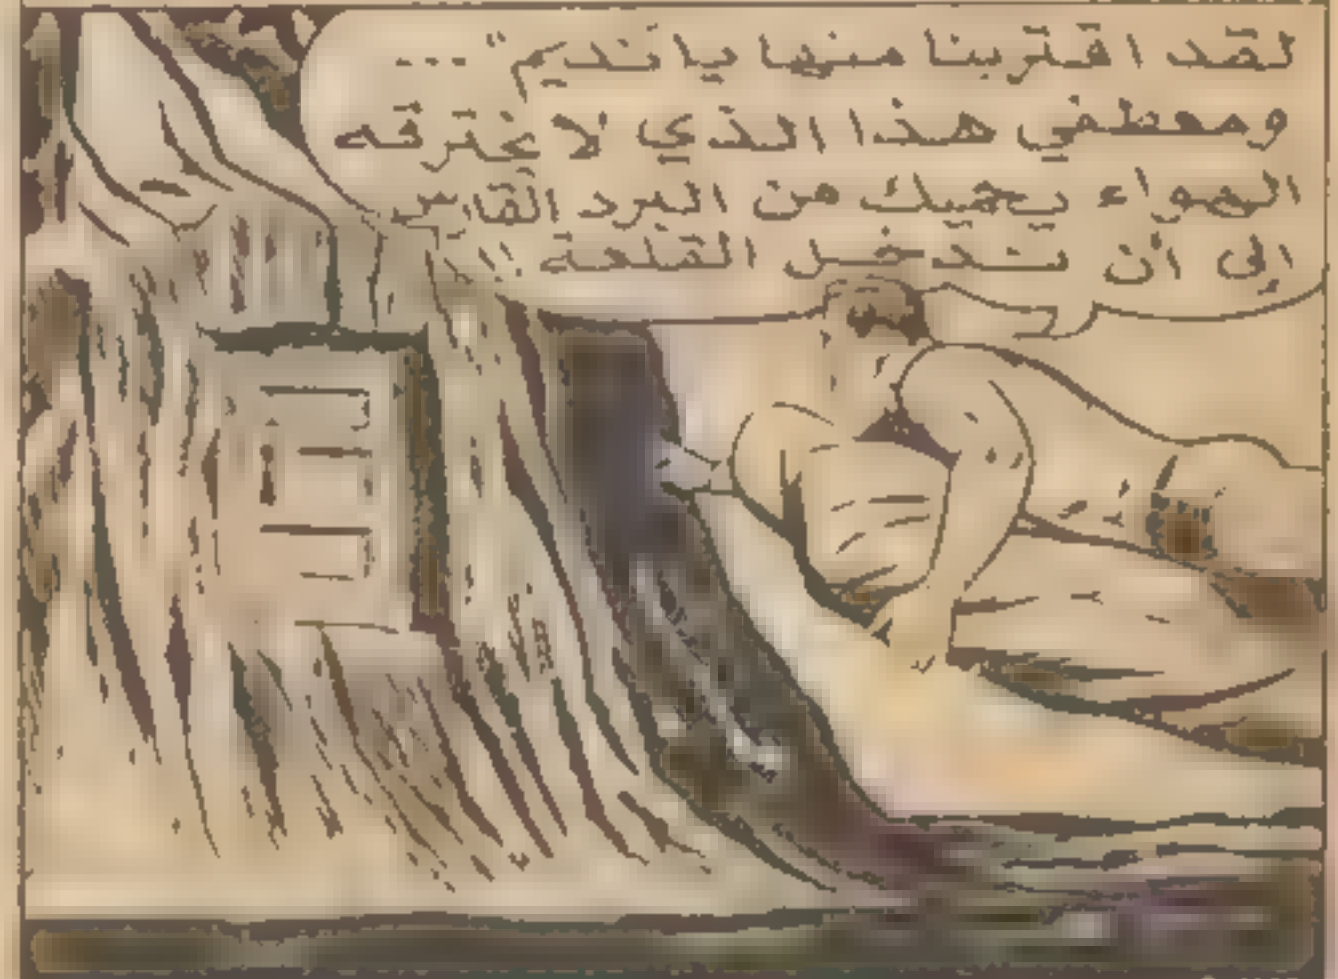 لقد اقتربنا منها يا نديم" ...
ومعطفي هذا الذي لا يخترقه
الهواء يحميك من البرد القارس
إلى أن ندخل القلعة !!